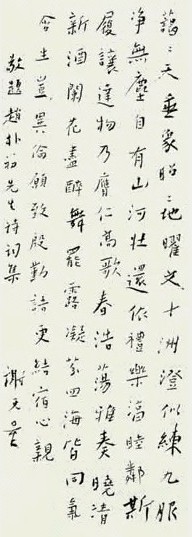 藹藹天垂象昭昭地曜文十洲澄似練九服
净無塵自有山河壯還依禮樂滔睦鄰斯
履讓達物乃膺仁高歌春浩蕩雅奏曉清
新酒闌花盡醉舞罷露凝茶四海皆同氣
含生豈異倫願致殷勤語更結宿心親
敬題趙朴翁先生詩詞集